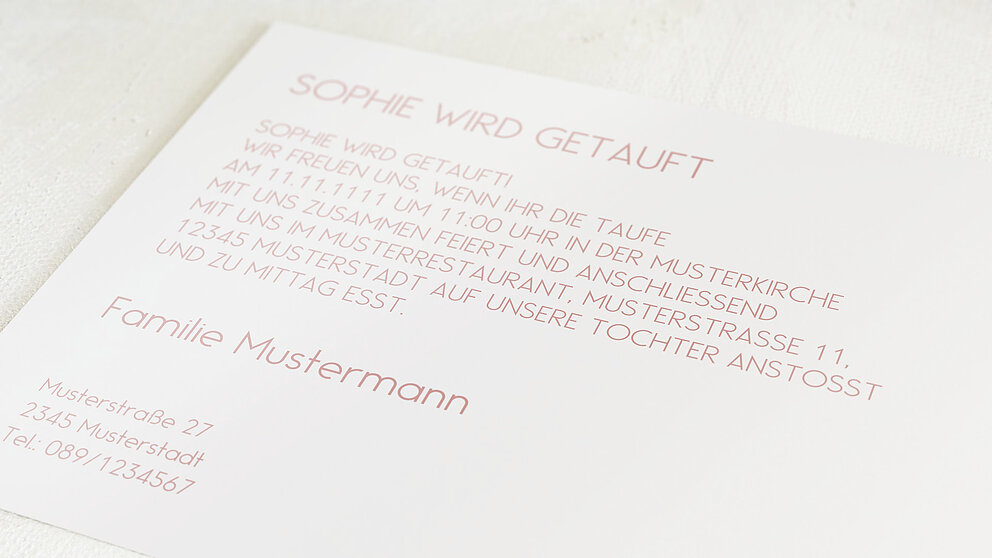 SOPHIE WIRD GETAUFT
SOPHIE WIRD GETAUFT!
WIR FREUEN UNS, WENN IHR DIE TAUFE
AM 11.11.1111 UM 11:00 UHR IN DER MUSTERKIRCHE
MIT UNS ZUSAMMEN FEIERT UND ANSCHLIESSEND
MIT UNS IM MUSTERRESTAURANT, MUSTERSTRASSE 11,
12345 MUSTERSTADT AUF UNSERE TOCHTER ANSTOSST
UND ZU MITTAG ESST.
Familie Mustermann
Musterstraße 27
2345 Musterstadt
Tel.: 089/1234567